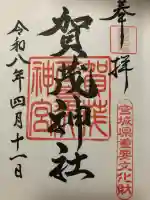 奉拝
宮城県重要文化財
賀茂神社
令和八年四月十一日